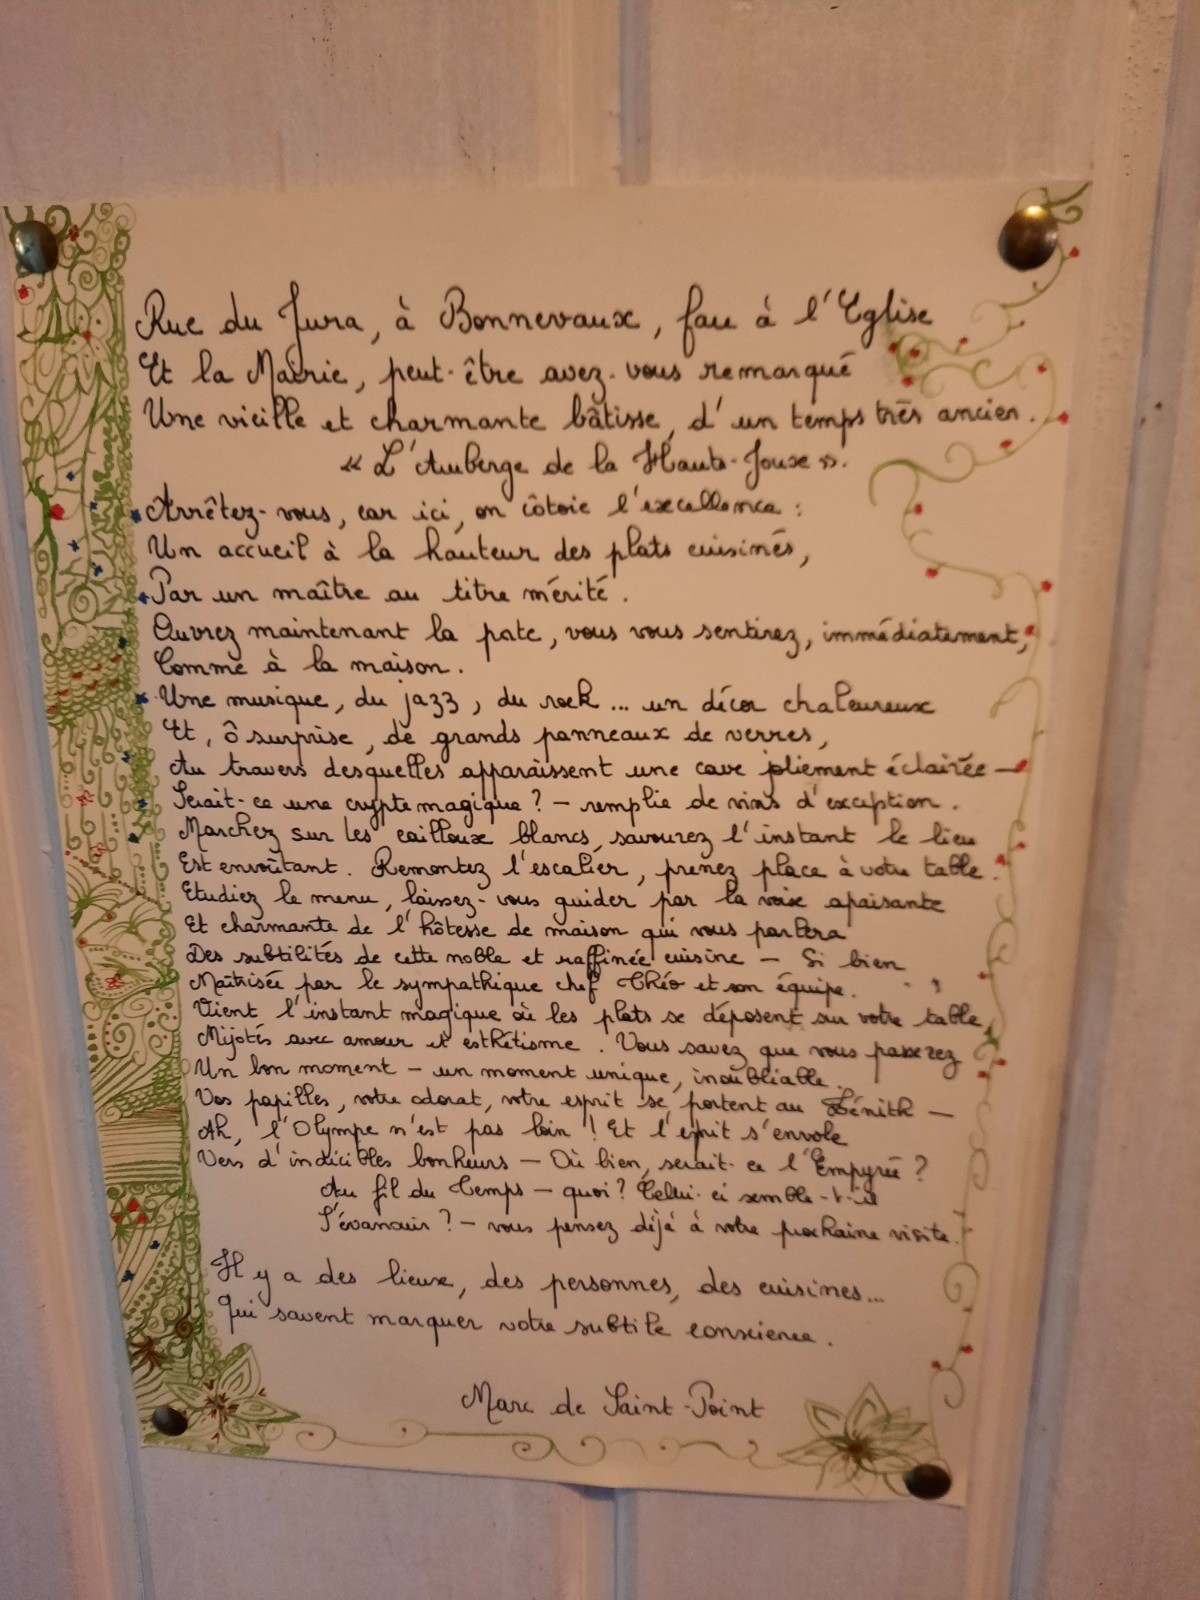 Rue du Jura, à Bonnevaux, face à l'Eglise
Et la Mairie, peut-être avez-vous remarqué
Une vieille et charmante bâtisse, d'un temps très ancien.
« L'Auberge de la Haute-Joux ».
Arrêtez-vous, car ici, on côtoie l'excellence :
Un accueil à la hauteur des plats cuisinés,
Par un maître au titre mérité.
Ouvrez maintenant la porte, vous vous sentirez, immédiatement,
Comme à la maison.
Une musique, du jazz, du rock... un décor chaleureux
Et, ô surprise, de grands panneaux de verres,
Au travers desquelles apparaissent une cave joliment éclairée —
Serait-ce une crypte magique ? — remplie de vins d'exception.
Marchez sur les cailloux blancs, savourez l'instant le lieu
Est envoûtant. Remontez l'escalier, prenez place à votre table.
Etudiez le menu, laissez-vous guider par la voix apaisante
Et charmante de l'hôtesse de maison qui vous parlera
Des subtilités de cette noble et raffinée cuisine — Si bien
Maîtrisée par le sympathique chef Théo et son équipe.
Vient l'instant magique où les plats se déposent sur votre table,
Mijotés avec amour et esthétisme. Vous savez que vous passerez
Un bon moment — un moment unique, inoubliable.
Vos papilles, votre odorat, votre esprit se portent au Zénith —
Ah, l'Olympe n'est pas loin ! Et l'esprit s'envole
Vers d'indicibles bonheurs — Où bien, serait-ce l'Empyrée ?
Au fil du Temps — quoi ? Celui-ci semble-t-il
S'évanouir ? — vous pensez déjà à votre prochaine visite.
Il y a des lieux, des personnes, des cuisines...
Qui savent marquer votre subtile conscience.
Marc de Saint-Point